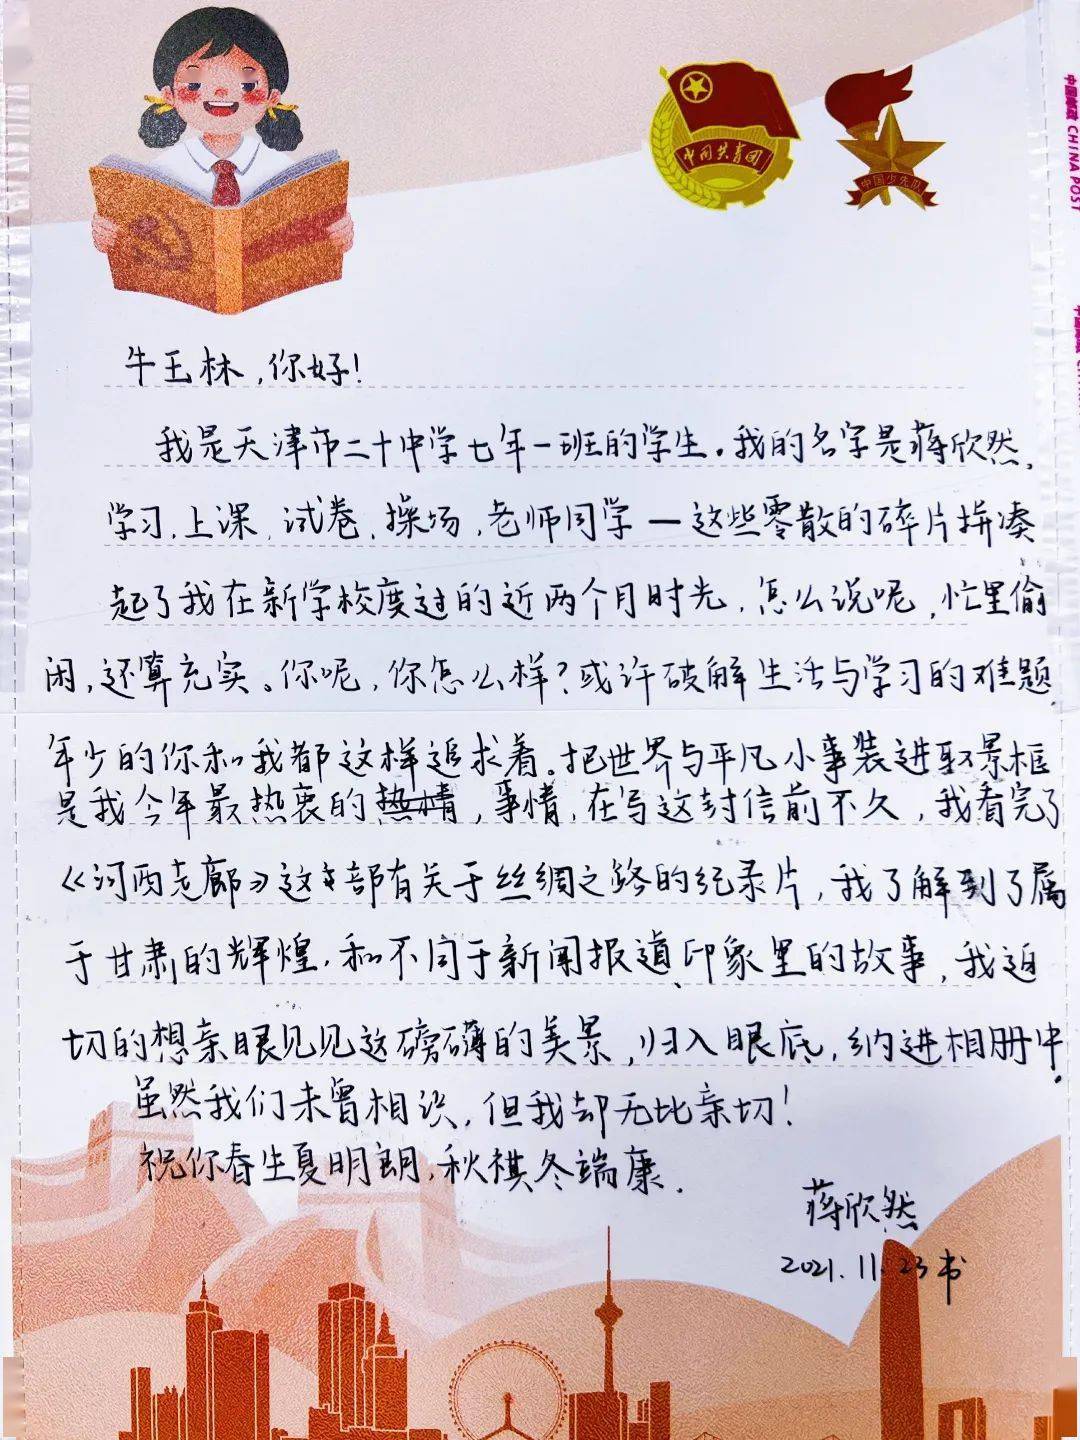 中国共青团
中国少先队
中国邮政 CHINA POST
牛玉林,你好!
我是天津市二十中学七年一班的学生。我的名字是蒋欣然,
学习,上课,试卷,操场,老师同学—这些零散的碎片拼凑
起了我在新学校度过的近两个月时光,怎么说呢,忙里偷
闲,还算充实。你呢,你怎么样?或许破解生活与学习的难题,
年少的你和我都这样追求着。把世界与平凡小事装进取景框
是我今年最热衷的热情,事情,在写这封信前不久,我看完了
《河西走廊》这部有关于丝绸之路的纪录片,我了解到了属
于甘肃的辉煌,和不同于新闻报道、印象里的故事,我迫
切的想亲眼见见这磅礴的美景,归入眼底,纳进相册中.
虽然我们未曾相识,但我却无比亲切!
祝你春生夏明朗,秋祺冬端康.
蒋欣然
2021.11.23书